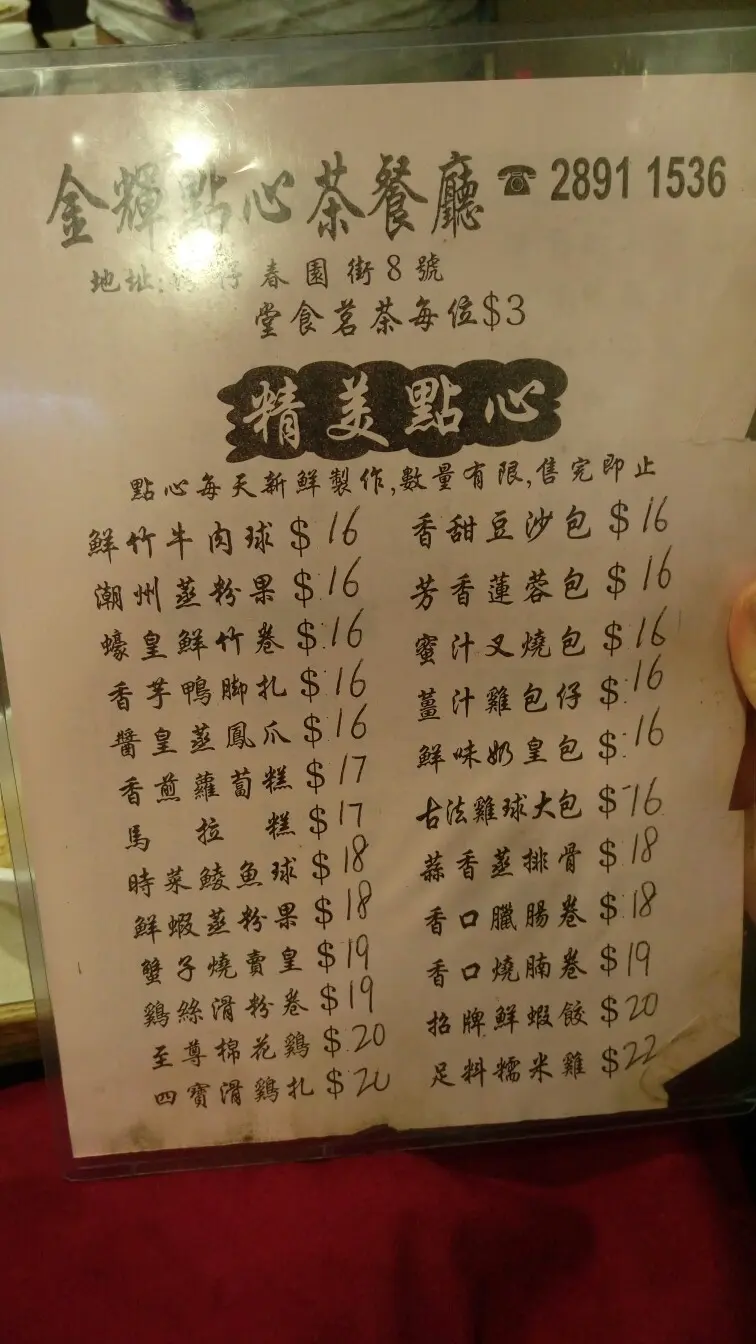 金輝點心茶餐廳 ☎ 2891 1536
地址:灣仔春園街8號
堂食茗茶每位$3
精美點心
點心每天新鮮製作,數量有限,售完即止
鮮竹牛肉球 $16
潮州蒸粉果 $16
蠔皇鮮竹卷 $16
香芋鴨脚扎 $16
醬皇蒸鳳爪 $16
香煎蘿蔔糕 $17
馬拉糕 $17
時菜鯪魚球 $18
鮮蝦蒸粉果 $18
蟹子燒賣皇 $19
鷄絲滑粉卷 $19
至尊棉花鷄 $20
四寶滑鷄扎 $20
香甜豆沙包 $16
芳香蓮蓉包 $16
蜜汁叉燒包 $16
薑汁雞包仔 $16
鮮味奶皇包 $16
古法雞球大包 $16
蒜香蒸排骨 $18
香口臘腸卷 $18
香口燒腩卷 $19
招牌鮮蝦餃 $20
足料糯米雞 $22